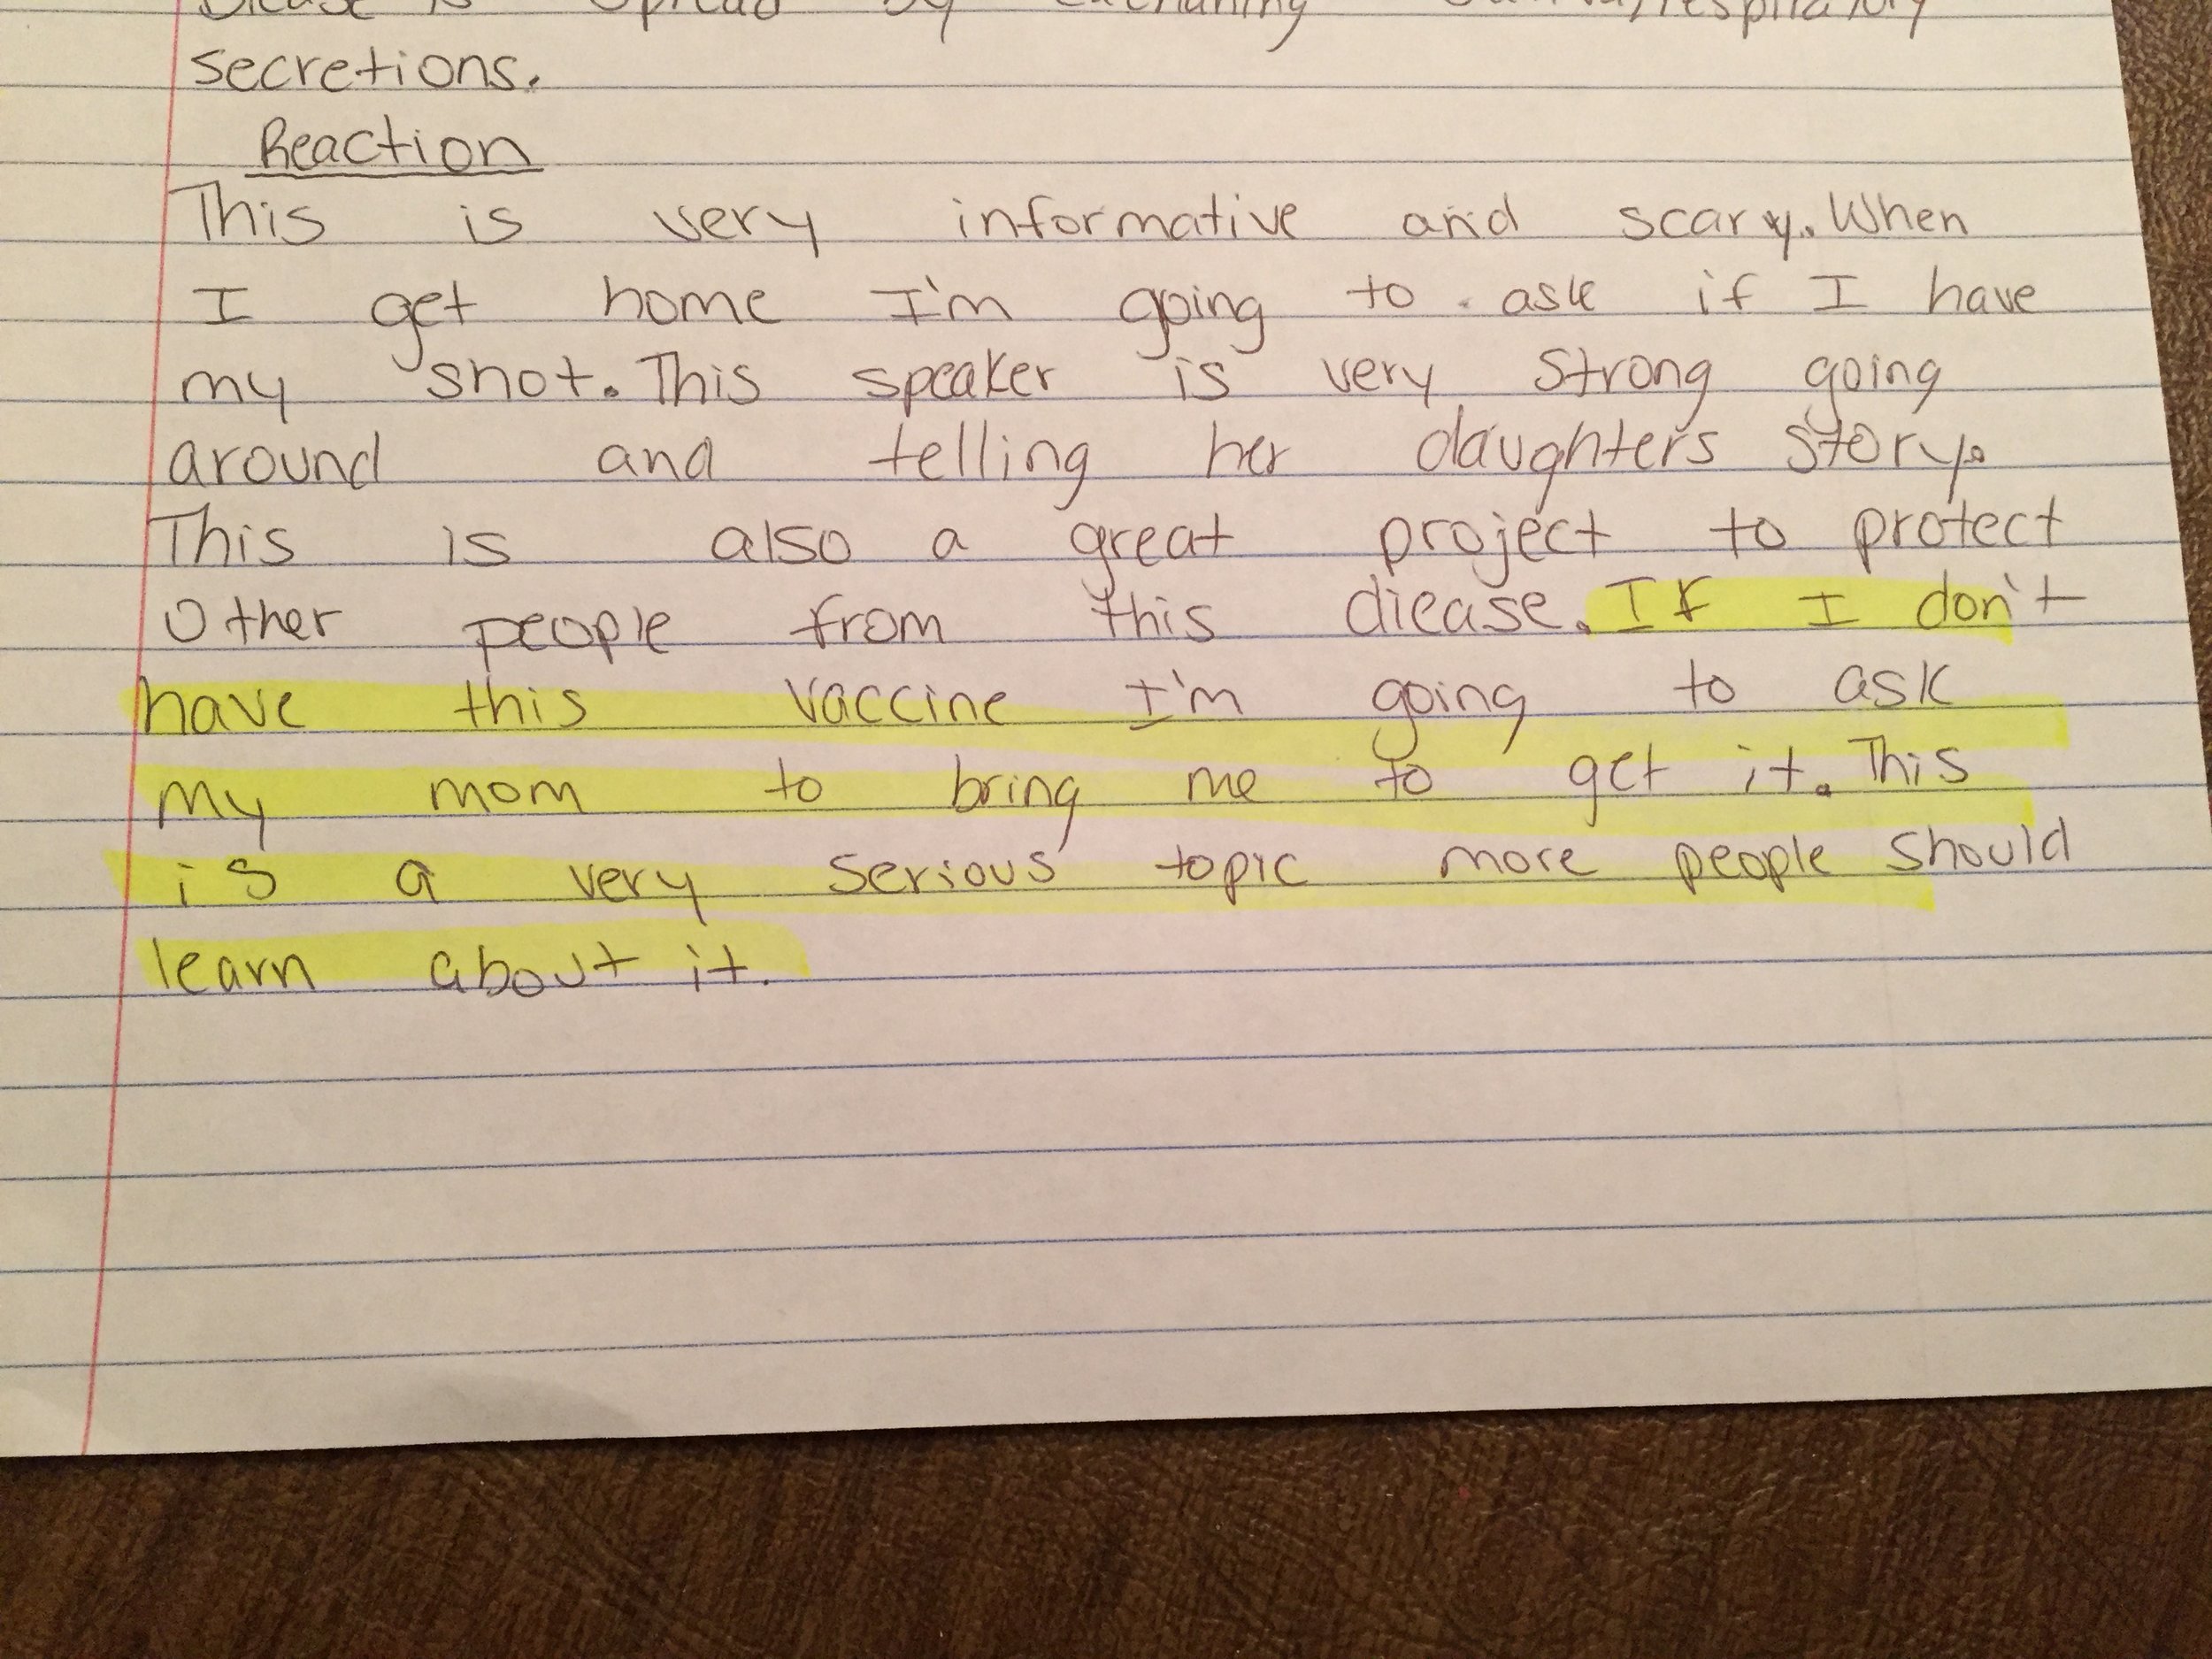 is spread by
secretions.
Reaction
This is very informative and scary. When
I get home I'm going to ask if I have
my shot. This speaker is very strong going
around and telling her daughters story.
This is also a great project to protect
Other people from this diease. If I don't
have this vaccine I'm going to ask
my mom to bring me to get it. This
is a very serious topic more people should
learn about it.